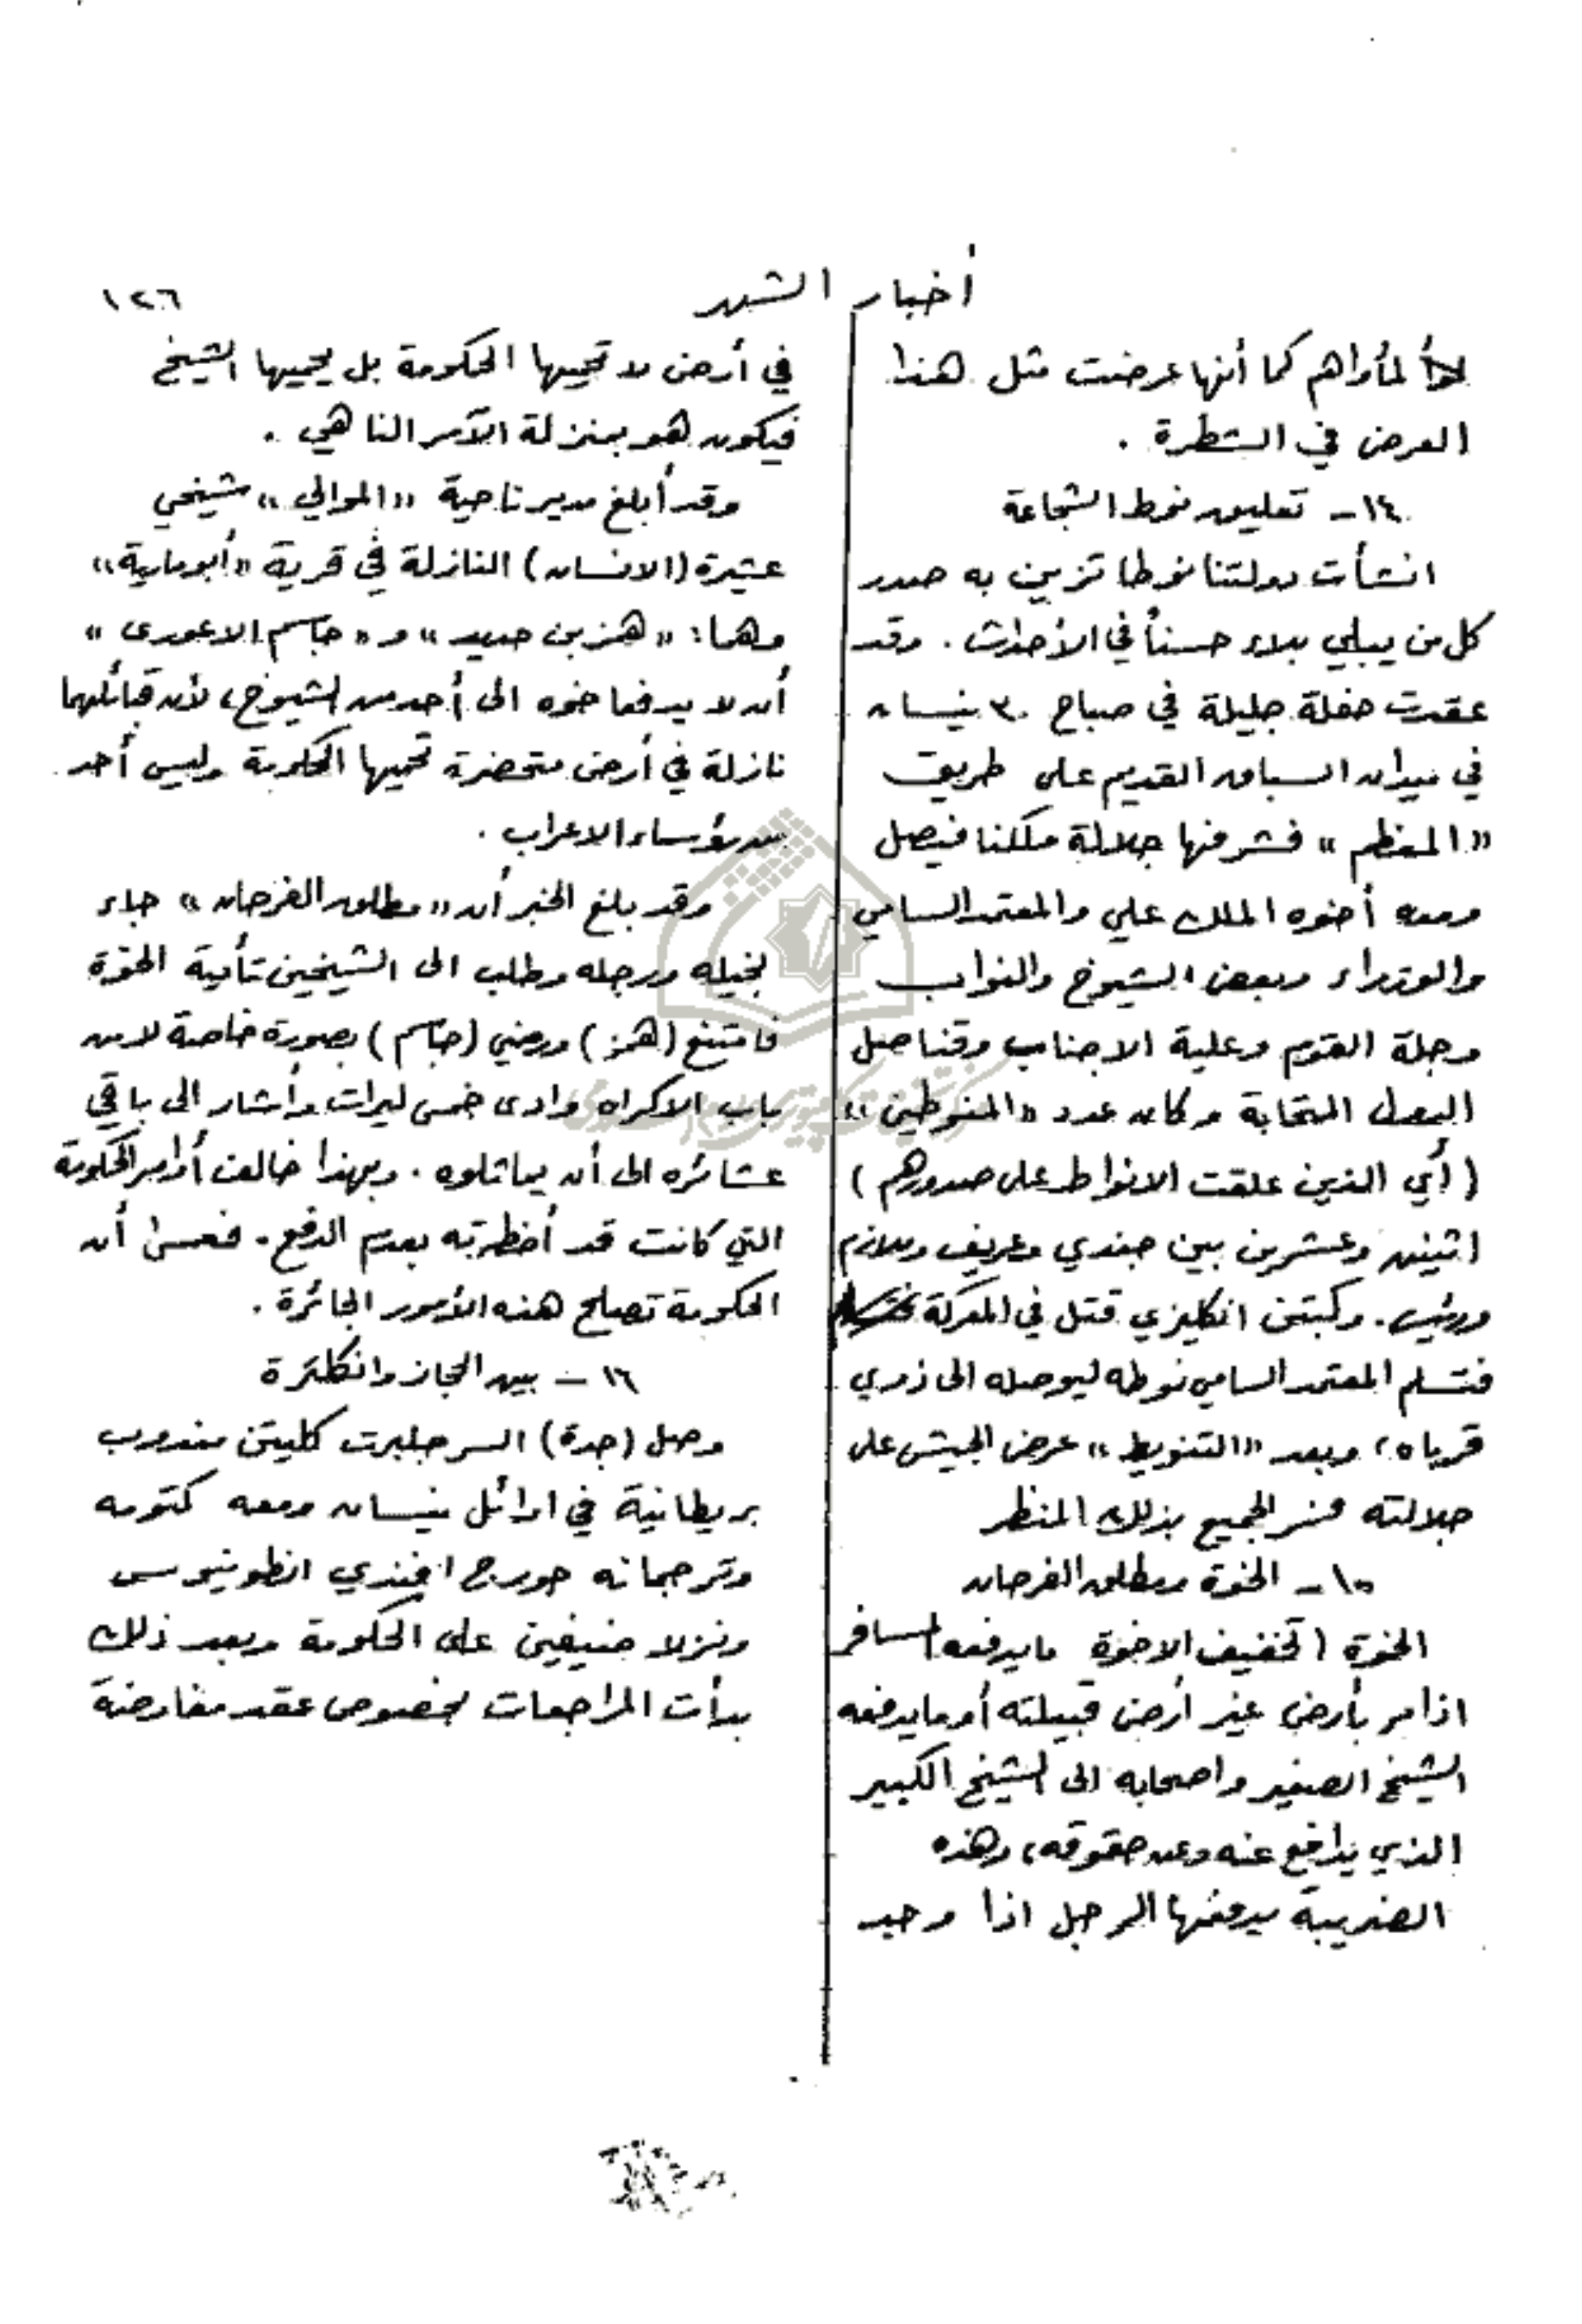 أخبار الشهر
١٢٦
لمأواهم كما أنها عرضت مثل هذا
العرض في الشطرة .
١٤ـ تعليق نوط الشجاعة
انشأت دولتنا نوطا تزين به صدر
كل من يبلي بلاء حسناً في الأحداث . وقد
عقدت حفلة جليلة في صباح ٣٠ نيسان
في ميدان السباق القديم على طريق
« المعظم » فشرفها جلالة ملكنا فيصل
ومعه أخوه الملك علي والمعتمد السامي
والوزراء وبعض الشيوخ والنواب
وجلة القوم وعلية الاجناب وقناصل
الدول المتحابة وكان عدد « المنوطين »
( أي الذين علقت الانواط على صدورهم )
اثنين وعشرين بين جندي وعريف وملازم
ورئيس . وكبتن انكليزي قتل في المعركة
فتسلم المعتمد السامي نوطه ليوصله الى ذوي
قرباه ، وبعد « التنويط » عرض الجيش على
جلالته فسر الجميع بذلك المنظر
١٥ـ الخوة ومطلق الفرحان
الخوة ( تخفيف الاخوة ما يدفعه المسافر
اذا مر بأرض غير أرض قبيلته أو ما يدفعه
الشيخ الصغير واصحابه الى الشيخ الكبير
الذي يدافع عنه وعن حقوقه ، وهذه
الضريبة يدفعها الرجل اذا وجد
في أرض لا تحميها الحكومة بل يحميها الشيخ
فيكون هو بمنزلة الآمر الناهي .
وقد أبلغ مدير ناحية « الموالي » شيخي
عشيرة ( الانسان ) النازلة في قرية « أبو مارية »
وهما : « هنز بن حديد » و « جاسم الاعودى »
أن لا يدفعا خوه الى أحد من الشيوخ ، لأن قبائلهما
نازلة في أرض متحضرة تحميها الحكومة وليس أحد
من رؤساء الاعراب .
وقد بلغ الخبر أن « مطلق الفرحان » جاء
بخيله ورجله وطلب الى الشيخين تأدية الخوة
فامتنع ( هنز ) ورضي ( جاسم ) بصورة خاصة لا من
باب الاكراه وادى خمس ليرات وأشار الى باقي
عشائره الى أن يماثلوه . وبهذا خالف أوامر الحكومة
التي كانت قد أخطرته بعدم الدفع . فعسى أن
الحكومة تصلح هذه الأمور الجائرة .
١٦ ـ بين الحجاز وانكلترة
وصل ( جدة ) السر جلبرت كليتن مندوب
بريطانية في اوائل نيسان ومعه كتومه
وترجمانه جورج افندي انطونيوس
ونزلا ضيفين على الحكومة وبعد ذلك
بدأت المراجعات بخصوص عقد مفاوضة